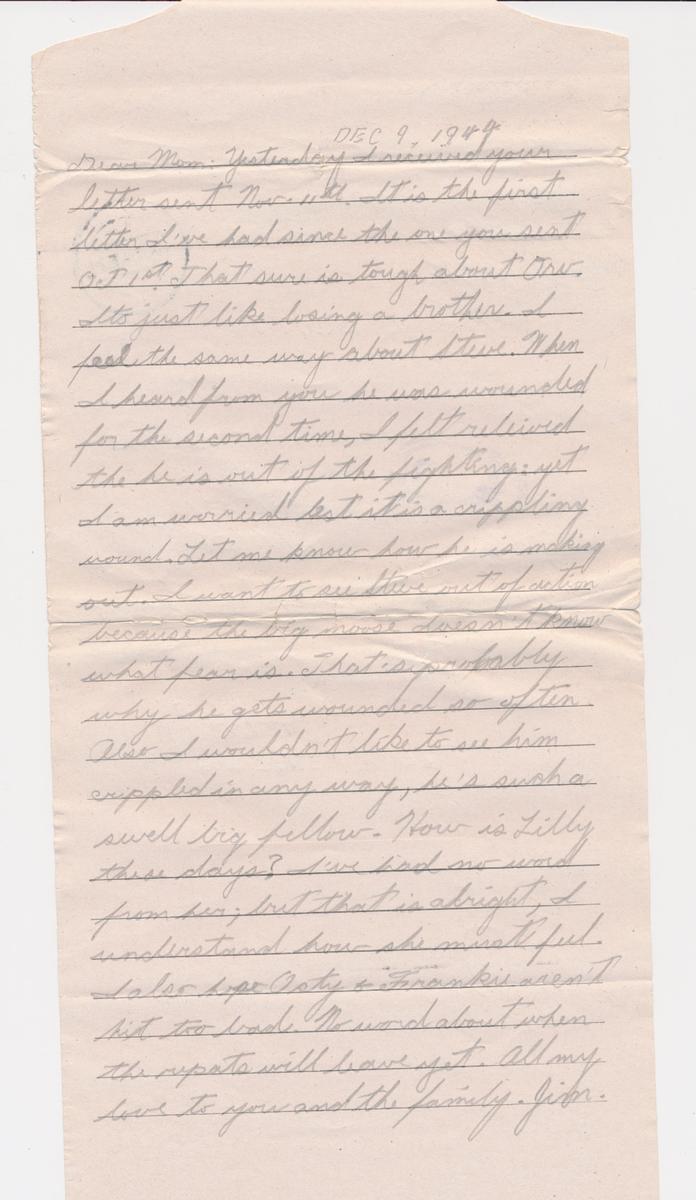 DEC 9, 1944
Dear Mom. Yesterday I received your
letter sent Nov. 11th. It is the first
letter I've had since the one you sent
Oct 1st. That sure is tough about Orv.
Its just like losing a brother. I
feel the same way about Steve. When
I heard from you he was wounded
for the second time, I felt releived
the he is out of the fighting; yet
I am worried lest it is a crippling
wound. Let me know how he is making
out. I want to see Steve out of action
because the big moose doesn't know
what fear is. That's probably
why he gets wounded so often.
Also I wouldn't like to see him
crippled in any way, he's such a
swell big fellow. How is Lilly
these days? I've had no word
from her; but that is alright, I
understand how she must feel.
I also hope Osty & Frankie aren't
hit too bad. No word about when
the repats will leave yet. All my
love to you and the family. Jim.